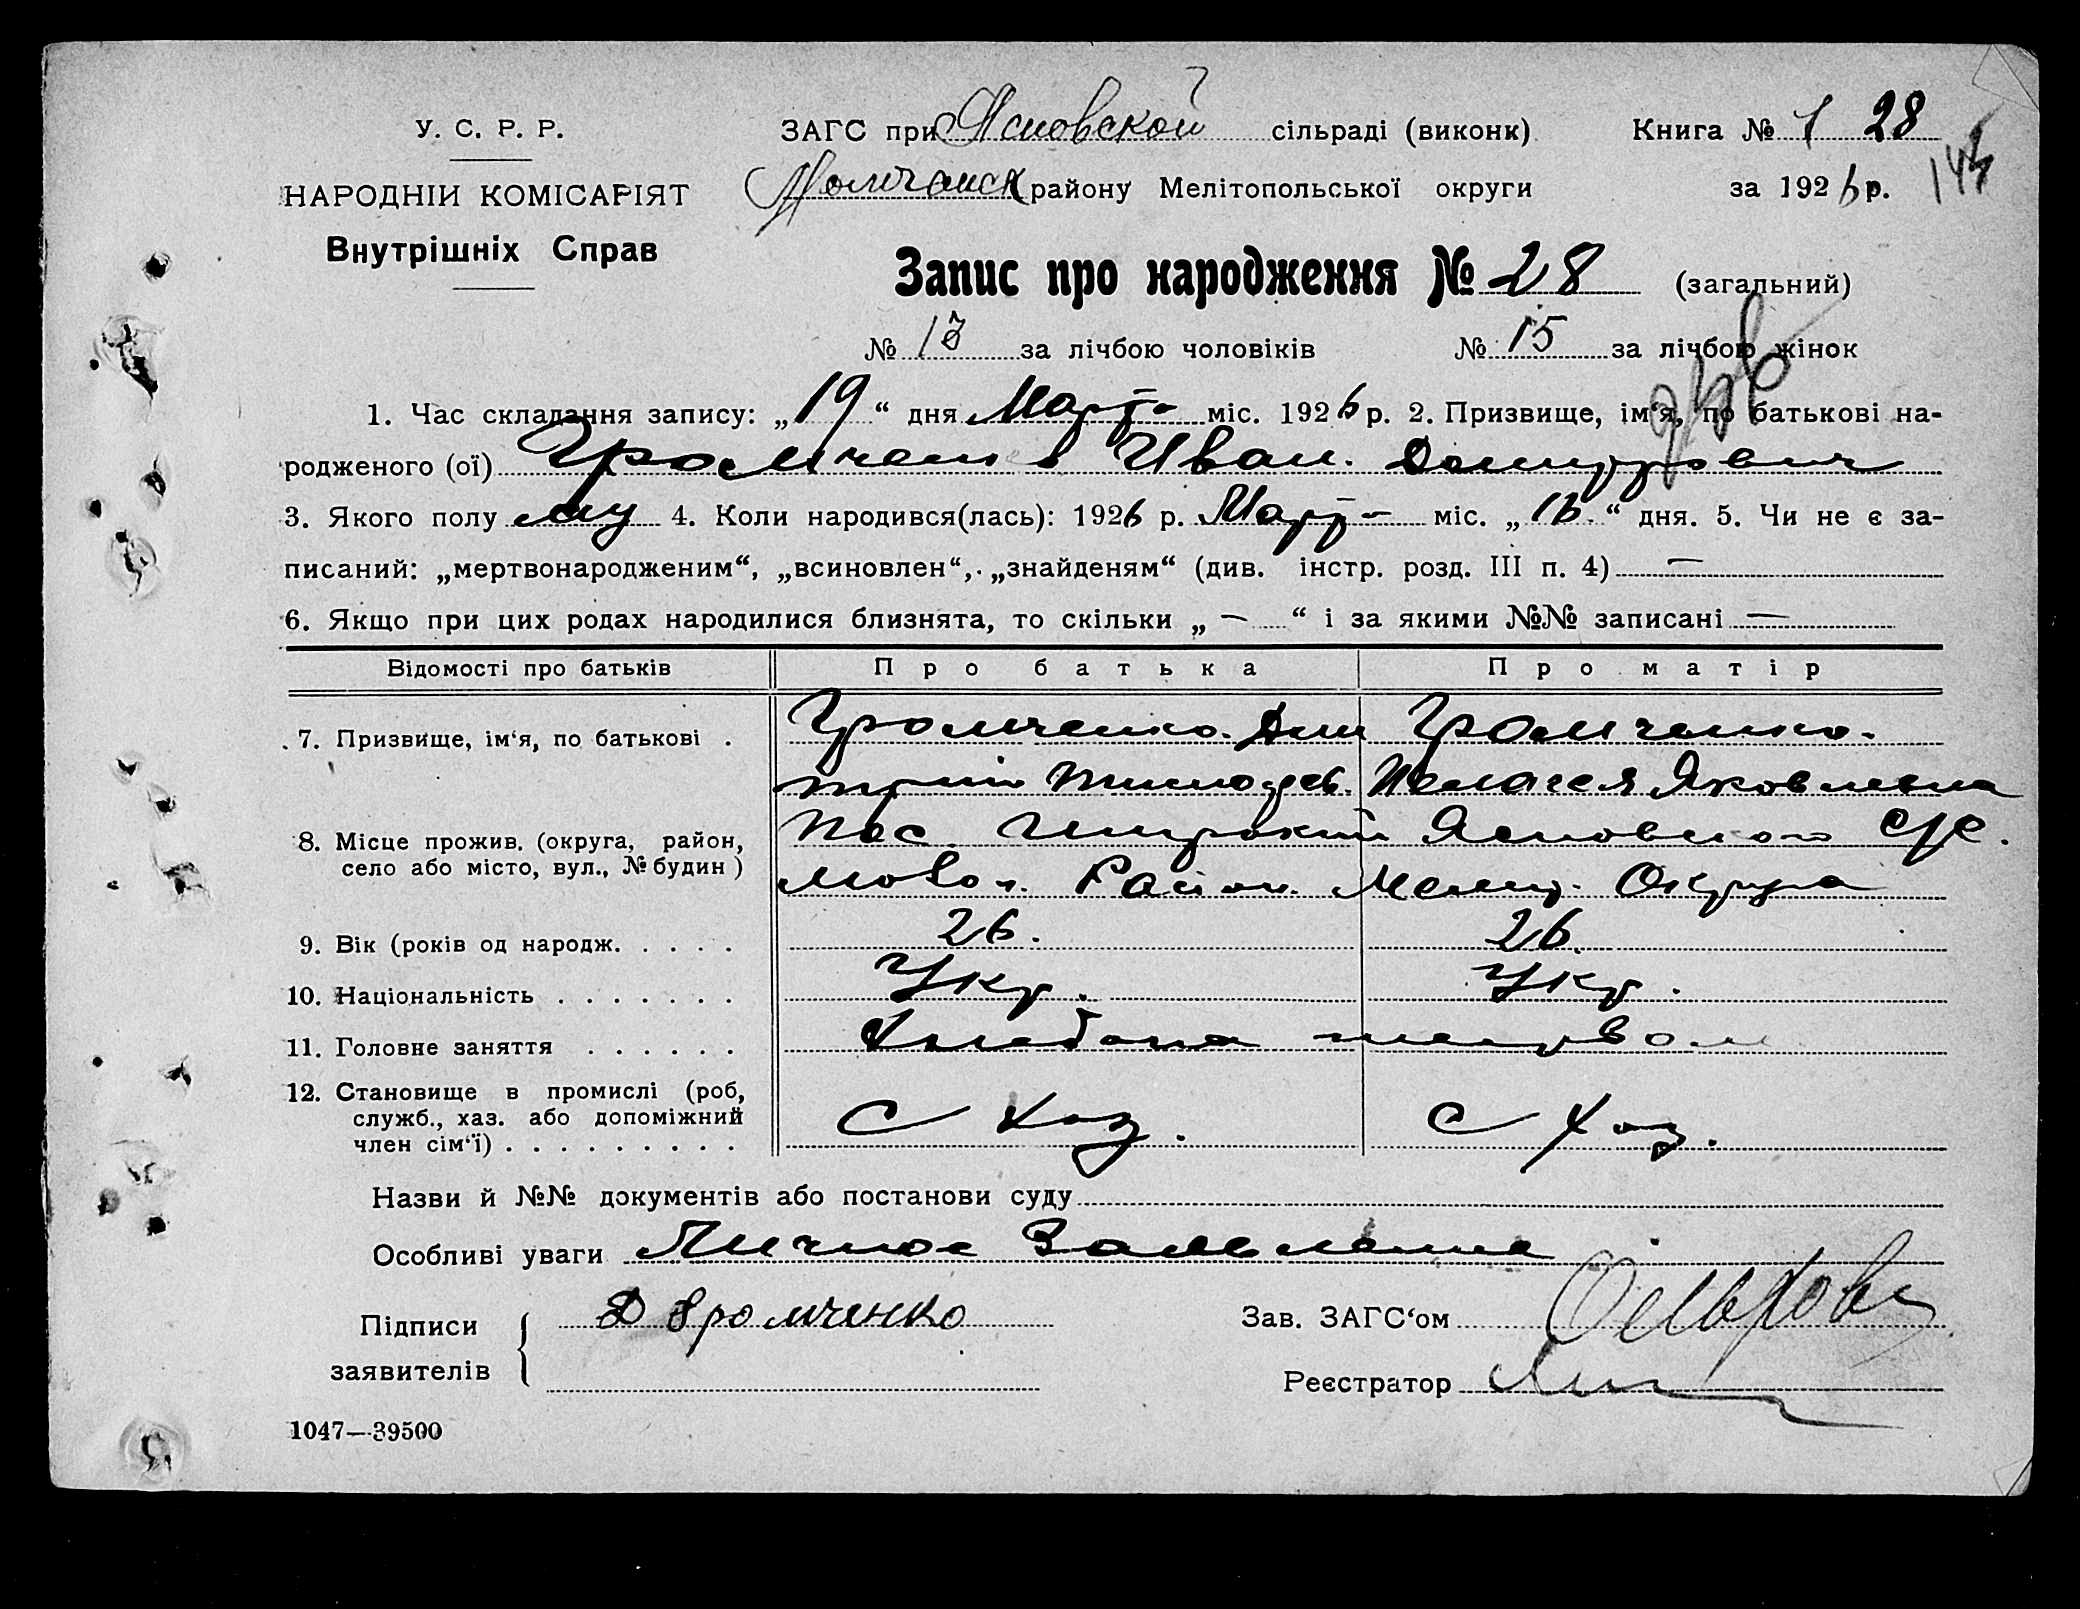 У. С. Р. Р.
НАРОДНІЙ КОМІСАРІЯТ
Внутрішніх Справ
ЗАГС при Ясновской сільраді (виконк)
Молочанск району Мелітопольської округи
Книга № 1 28
за 1926 р. 144
Запис про народження № 28 (загальний)
№ 13 за лічбою чоловіків № 15 за лічбою жінок
1. Час складання запису: „19“ дня Март міс. 1926 р. 2. Призвище, ім‘я, по батькові на-
родженого (ої) Громченко Иван Дмитрович
3. Якого полу муж 4. Коли народився(лась): 1926 р. Март міс. „16“ дня. 5. Чи не є за-
писаний: „мертвонародженим“, „всиновлен“, „знайденям“ (див. інстр. розд. III п. 4) —
6. Якщо при цих родах народилися близнята, то скільки „ — “ і за якими №№ записані —
Відомості про батьків Про батька Про матір
7. Призвище, ім‘я, по батькові . Громченко Дми Громченко
трий Тимофеев. Пелагея Яковлевна
8. Місце прожив. (округа, район, село або місто, вул., № будин) Пос Широкий Ясновского С/с.
Район Мелит. Округа
9. Вік (років од народж. . . . . 26. 26.
10. Національність . . . . . . . Укр. Укр.
11. Головне заняття . . . . . . Хлебопашеством
12. Становище в промислі (роб,
служб., хаз. або допоміжний
член сім‘ї) . . . . . . . . . С Хоз. С Хоз.
Назви й №№ документів або постанови суду
Особливі уваги Личное Заявление
Підписи
заявителів { Д Громченко
Зав. ЗАГС‘ом
Реєстратор
1047—39500